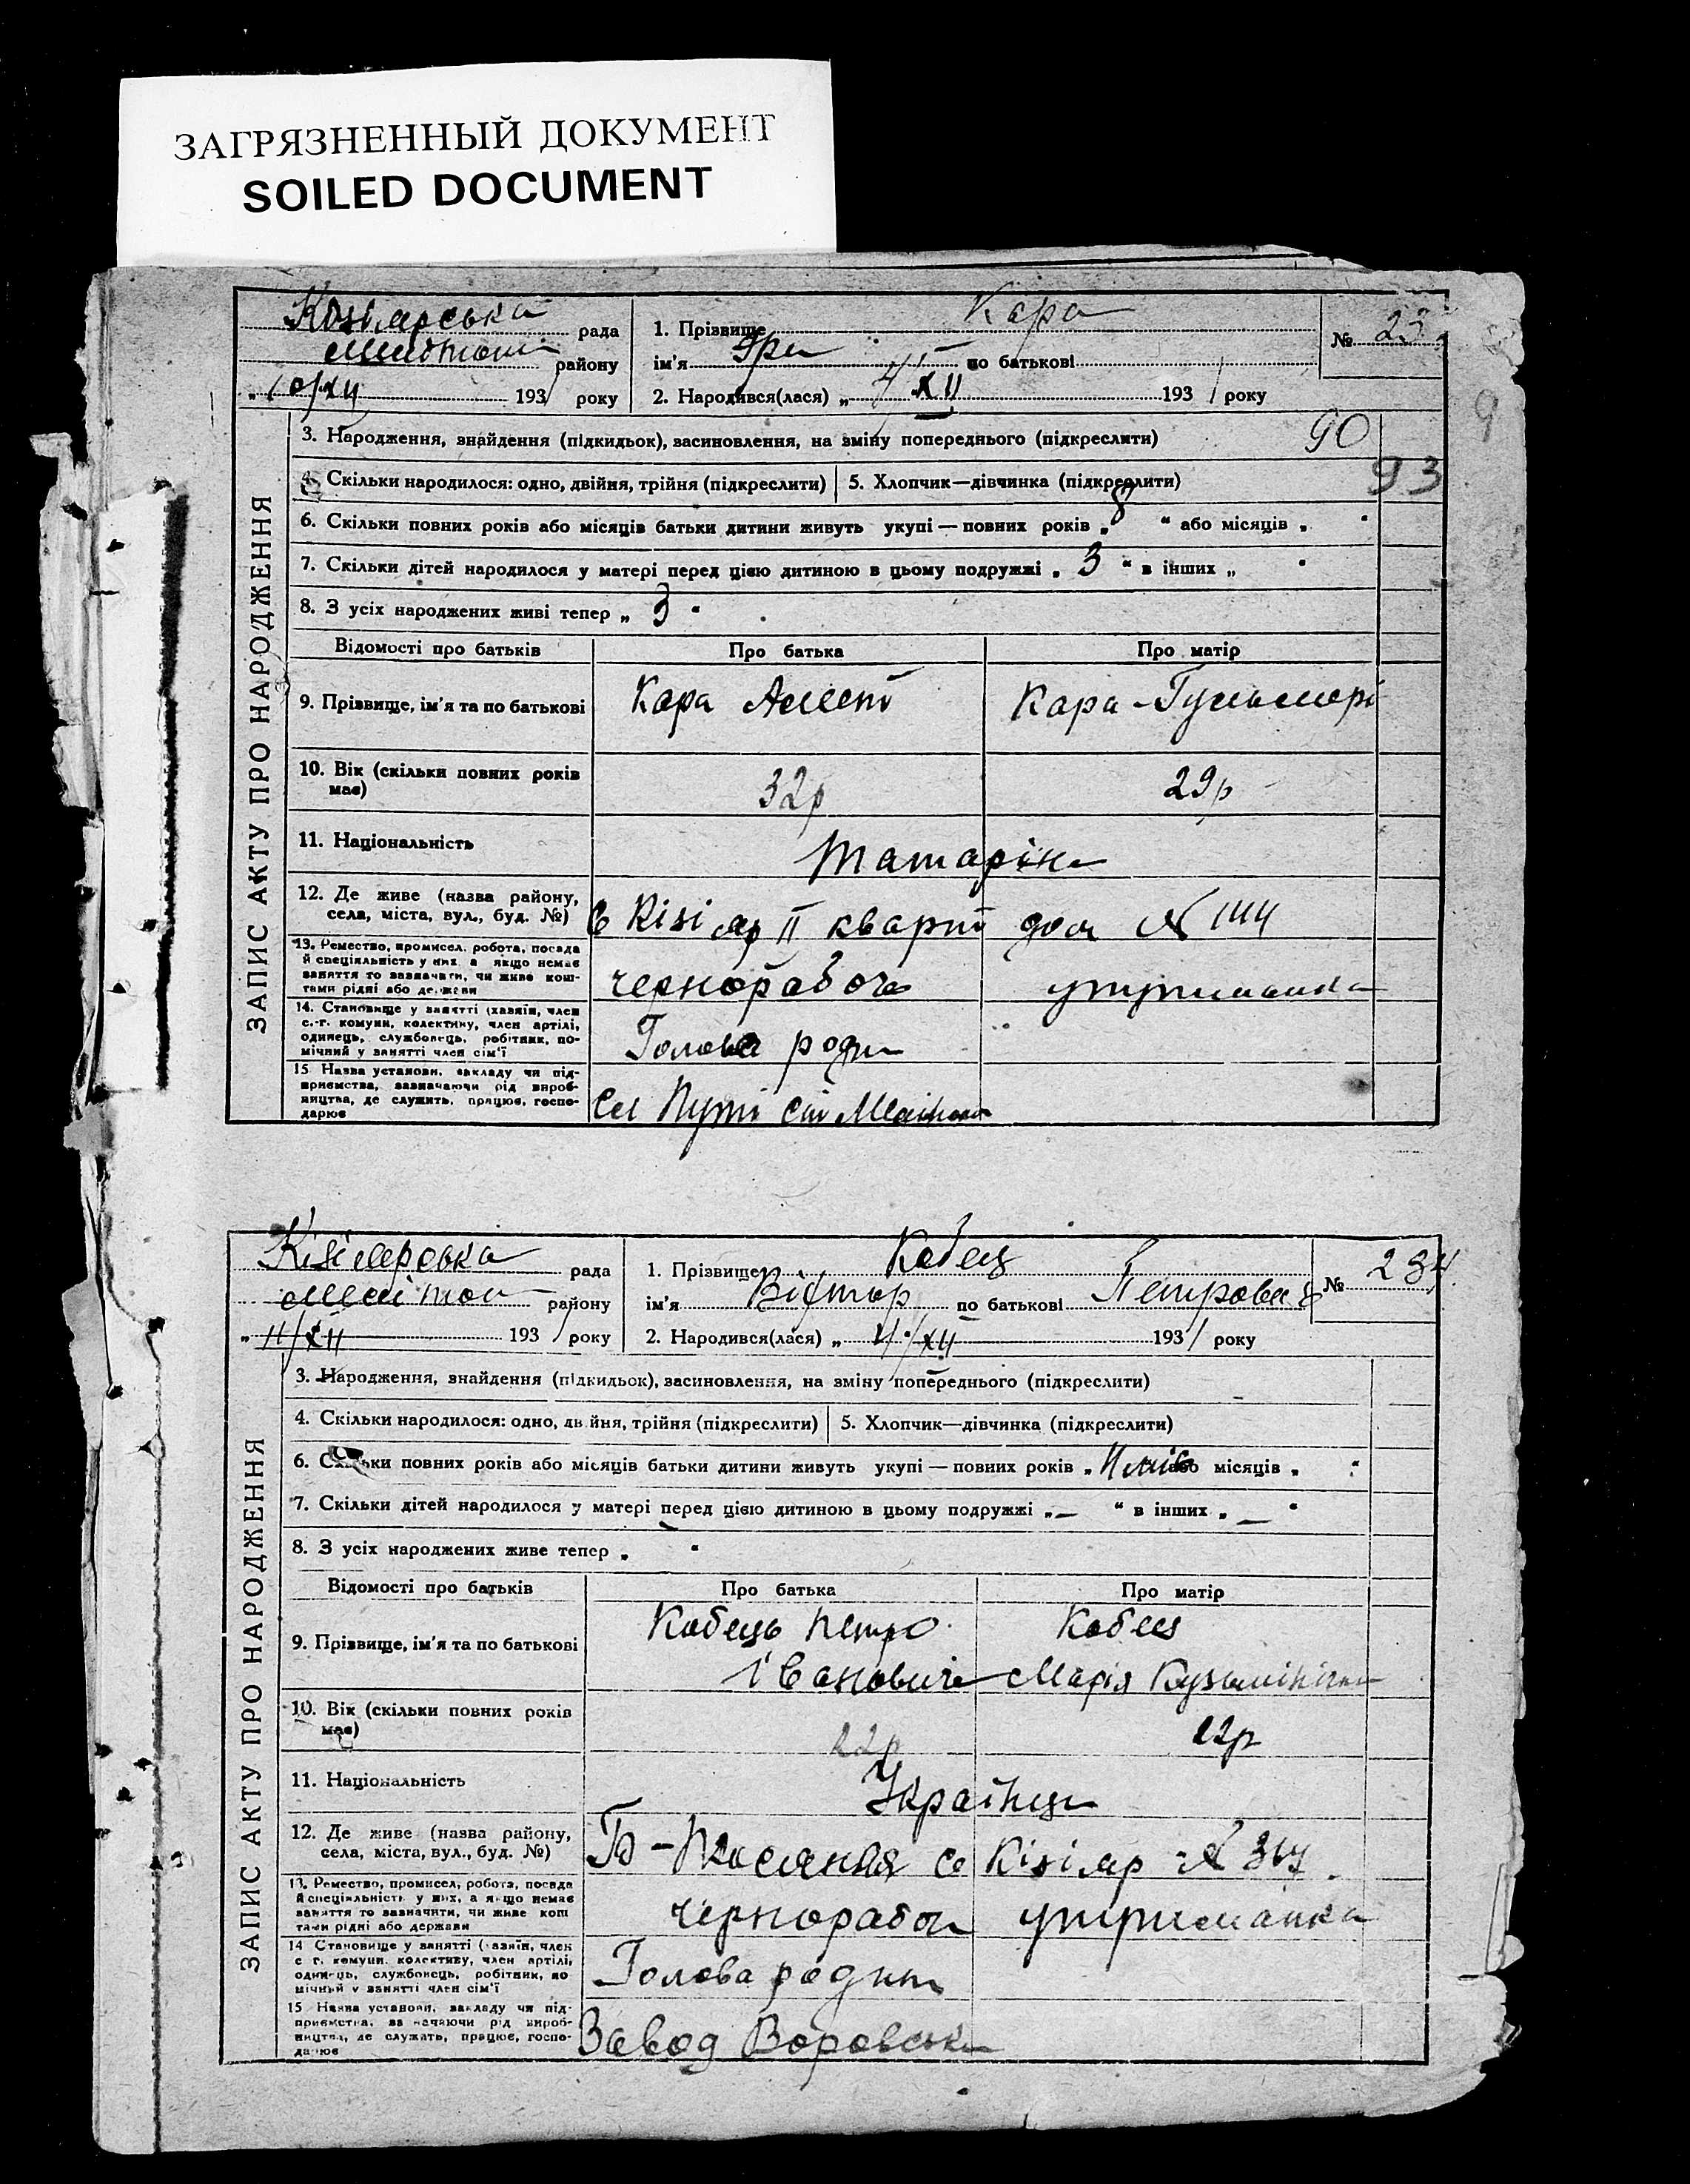 ЗАГРЯЗНЕННЫЙ ДОКУМЕНТ
SOILED DOCUMENT
рада
району
10/XII 1931 року
1. Прізвище Кара
ім'я по батькові
2. Народився(лася) „ XII 1931 року
№ 23
9
ЗАПИС АКТУ ПРО НАРОДЖЕННЯ
3. Народження, знайдення (підкидьок), засиновлення, на зміну попереднього (підкреслити) 90
4. Скільки народилося: одно, двійня, трійня (підкреслити) 5. Хлопчик—дівчинка (підкреслити) 93
6. Скільки повних років або місяців батьки дитини живуть укупі — повних років „ 8 “ або місяців „ “
7. Скільки дітей народилося у матері перед цією дитиною в цьому подружжі „ 3 “ в інших „ “
8. З усіх народжених живі тепер „ 3 “
Відомості про батьків Про батька Про матір
9. Прізвище, ім'я та по батькові Кара Амет Кара
10. Вік (скільки повних років має) 32р 29р
11. Національність Татарін
12. Де живе (назва району,
села, міста, вул., буд. №) с Кізіляр II кварт дом № 144
13. Ремество, промисел, робота, посада
й спеціяльність у них, а якщо немає
заняття то зазначити, чи живе кош-
тами рідні або держави
чернорабоч утриманка
14. Становище у занятті (хазяїн, член
с.-г. комуни, колективу, член артілі,
одинець, службовець, робітник, по-
мічний у занятті член сім'ї
Голова родин
15 Назва установи, закладу чи під-
приємства, зазначаючи рід вироб-
ництва, де служить, працює, госпо-
дарює
Сл Путі ст
Кізілярська рада
району
11/XII 1931 року
1. Прізвище Кобец
ім'я Віктор по батькові Петрович
2. Народився(лася) „ XII 1931 року
№ 234
ЗАПИС АКТУ ПРО НАРОДЖЕННЯ
3. Народження, знайдення (підкидьок), засиновлення, на зміну попереднього (підкреслити)
4. Скільки народилося: одно, двійня, трійня (підкреслити) 5. Хлопчик—дівчинка (підкреслити)
6. Скільки повних років або місяців батьки дитини живуть укупі — повних років „ або місяців „ “
7. Скільки дітей народилося у матері перед цією дитиною в цьому подружжі „ — “ в інших „ — “
8. З усіх народжених живе тепер „ “
Відомості про батьків Про батька Про матір
9. Прізвище, ім'я та по батькові Кобець Петро Кобец
Івановичь Марія Кузьмінічна
10. Вік (скільки повних років має) 22р 22р
11. Національність Українци
12. Де живе (назва району,
села, міста, вул., буд. №) с Кізіляр №
13. Ремество, промисел, робота, посада
й спеціяльність у них, а якщо немає
заняття то зазначити, чи живе кош
тами рідні або держави
чернорабоч утриманка
14 Становище у занятті (хазяїн, член
с г. комуни, колективу, член артілі,
одинець, службовець, робітник, по
мічный у занятті член сім'ї
Голова родин
15 Назва установи, закладу чи під-
приємства, зазначаючи рід вироб-
ництва, де служать, працює, госпо-
дарює
Завод Воровськ